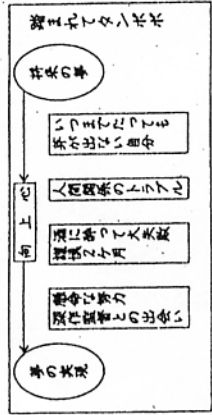 踏まれてタンポポ
将来の夢
向上心
いつまでたっても
芽が出ない自分
人間関係のトラブル
酒に酔って大失敗
2ケ月
懸命な努力
深作監督との出会い
夢の実現